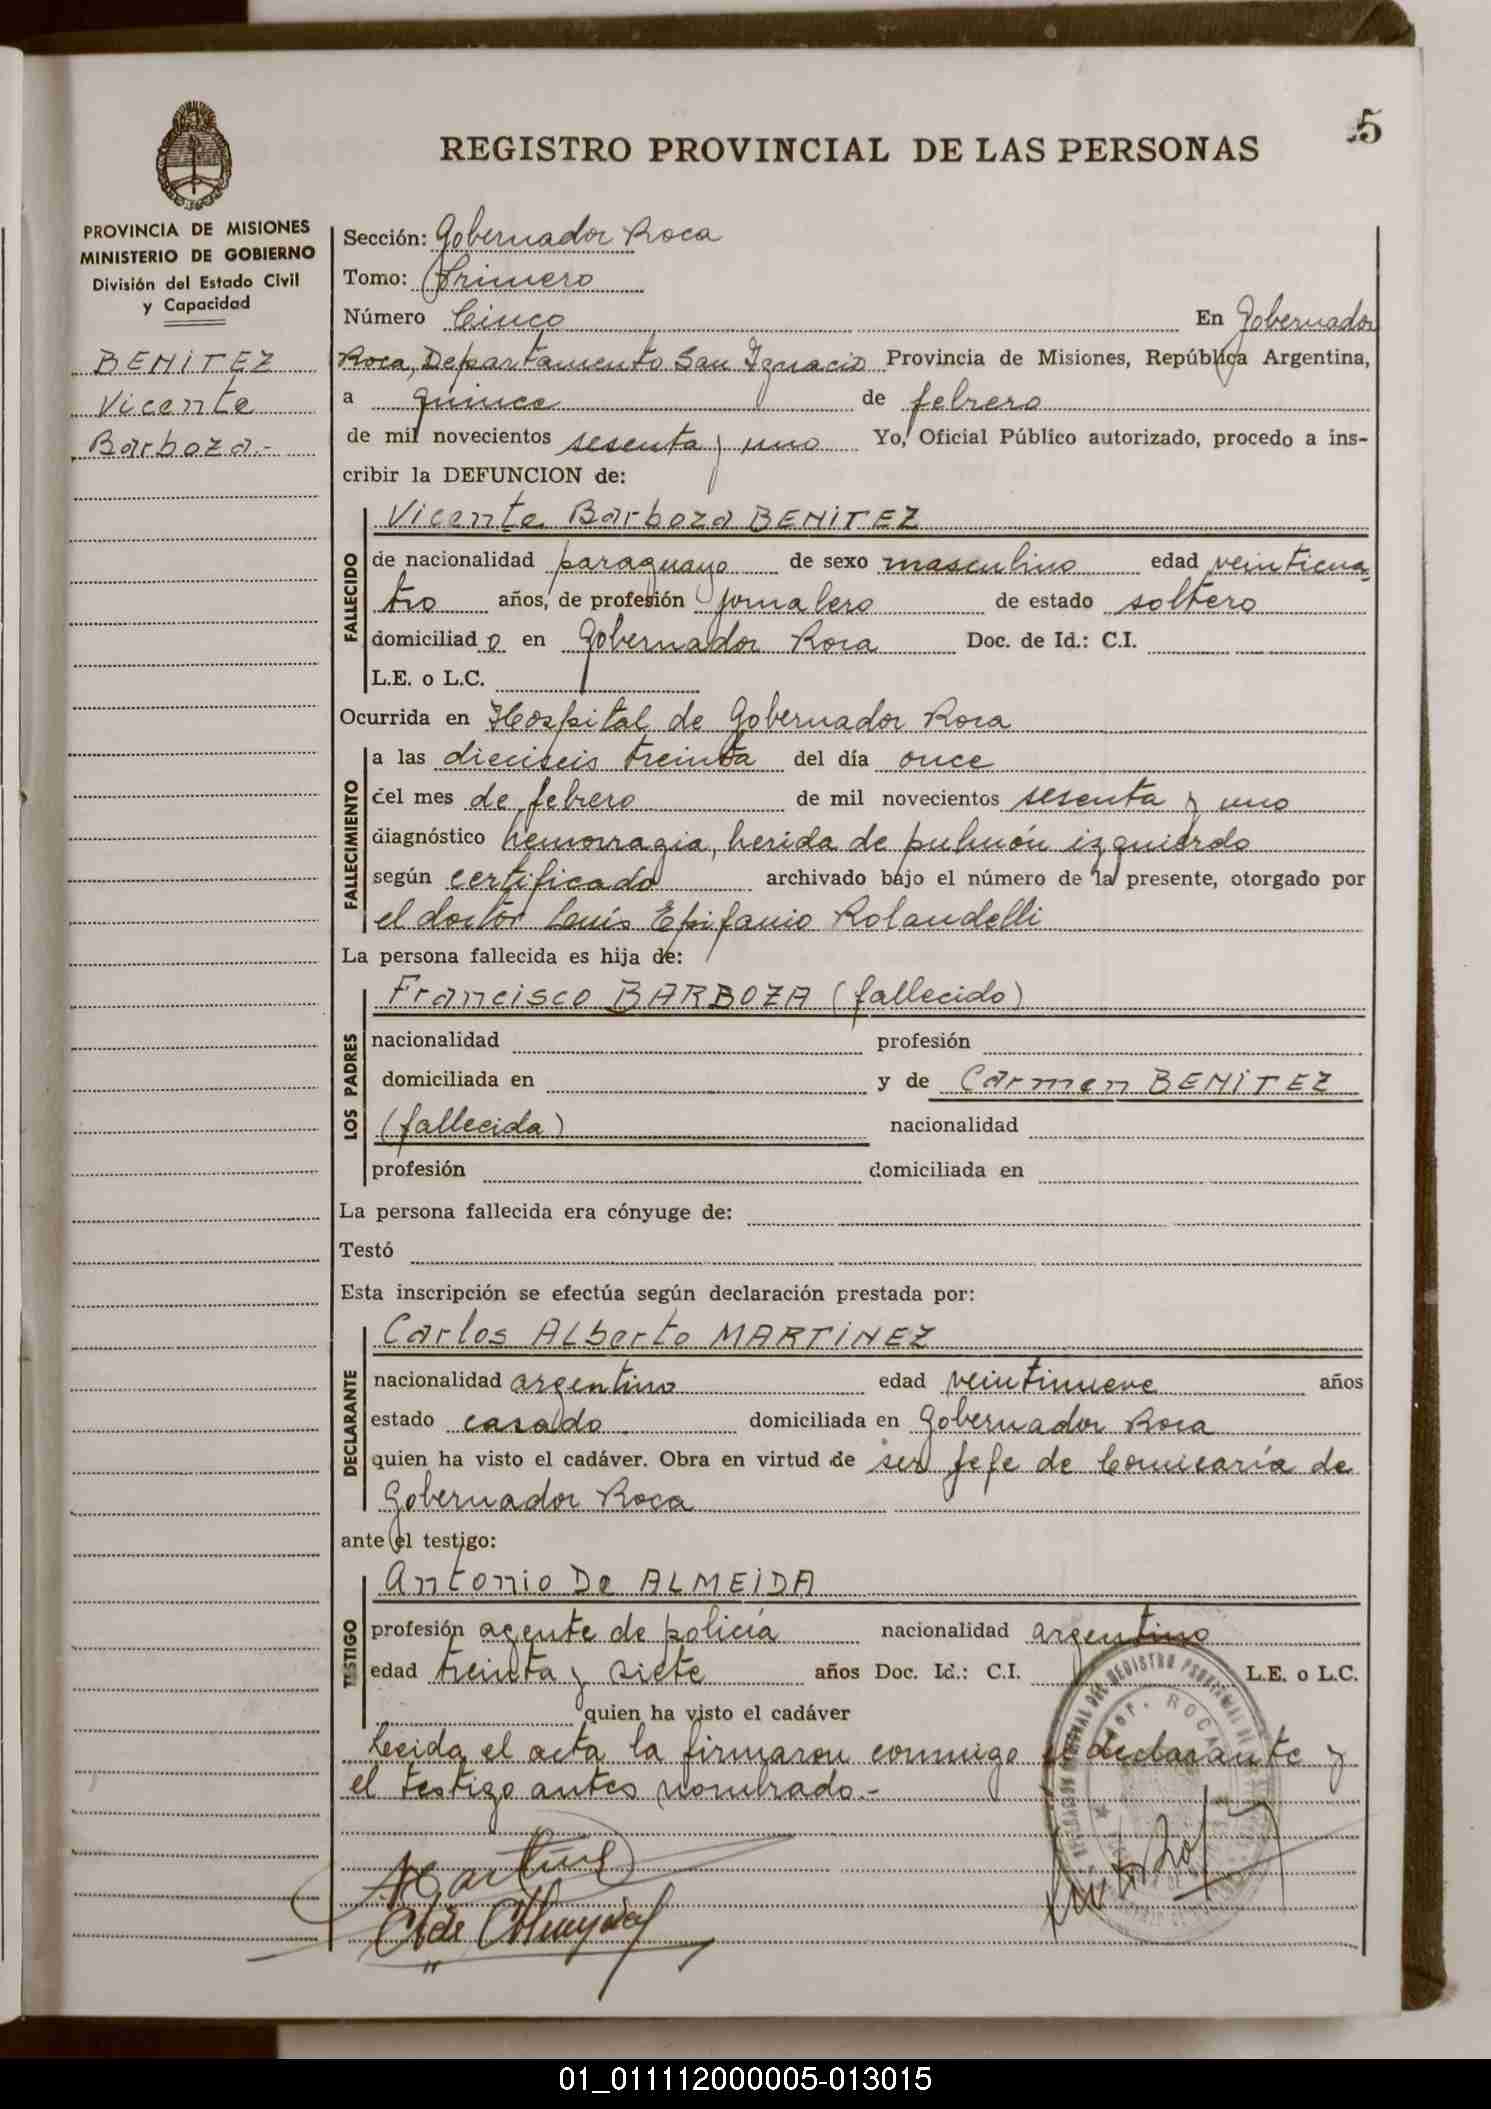 5
REGISTRO PROVINCIAL DE LAS PERSONAS
PROVINCIA DE MISIONES
MINISTERIO DE GOBIERNO
División del Estado Civil
y Capacidad
BENITEZ
Vicente
Barboza.-
Sección: Gobernador Roca
Tomo: Primero
Número Cinco En Gobernador
Roca, Departamento San Ignacio Provincia de Misiones, República Argentina,
a quince de febrero
de mil novecientos sesenta y uno Yo, Oficial Público autorizado, procedo a ins-
cribir la DEFUNCION de:
Vicente Barboza BENITEZ
FALLECIDO
de nacionalidad paraguayo de sexo masculino edad veinticua
tro años, de profesión jornalero de estado soltero
domiciliad o en Gobernador Roca Doc. de Id.: C.I.
L.E. o L.C.
Ocurrida en Hospital de Gobernador Roca
FALLECIMIENTO
a las dieciseis treinta del día once
del mes de febrero de mil novecientos sesenta y uno
diagnóstico hemorragia, herida de pulmón izquierdo
según certificado archivado bajo el número de la presente, otorgado por
el doctor Luis Epifanio Rolandelli
La persona fallecida es hija de:
LOS PADRES
Francisco BARBOZA (fallecido)
nacionalidad profesión
domiciliada en y de Carmen BENITEZ
(fallecida) nacionalidad
profesión domiciliada en
La persona fallecida era cónyuge de:
Testó
Esta inscripción se efectúa según declaración prestada por:
DECLARANTE
Carlos Alberto MARTINEZ
nacionalidad argentino edad veintinueve años
estado casado domiciliada en Gobernador Roca
quien ha visto el cadáver. Obra en virtud de ser Jefe de Comisaría de
Gobernador Roca
ante el testigo:
TESTIGO
Antonio De ALMEIDA
profesión agente de policía nacionalidad argentino
edad treinta y siete años Doc. Id.: C.I. L.E. o L.C.
quien ha visto el cadáver
Leida el acta la firmaron conmigo el declarante y
el testigo antes nombrado.-
01_011112000005-013015